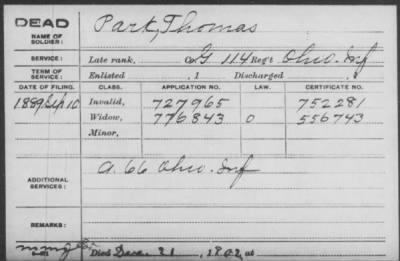 DEAD
NAME OF SOLDIER:
Park, Thomas
SERVICE:
Late rank, Co G 114 Reg't Ohio Inf
TERM OF SERVICE:
Enlisted , 1 Discharged , 1
DATE OF FILING. CLASS. APPLICATION NO. LAW. CERTIFICATE NO.
1889 Sep 10 Invalid, 727965 752281
Widow, 776843 0 556743
Minor,
ADDITIONAL SERVICES:
A. 66 Ohio. Inf
REMARKS:
Died 21, 1902, at